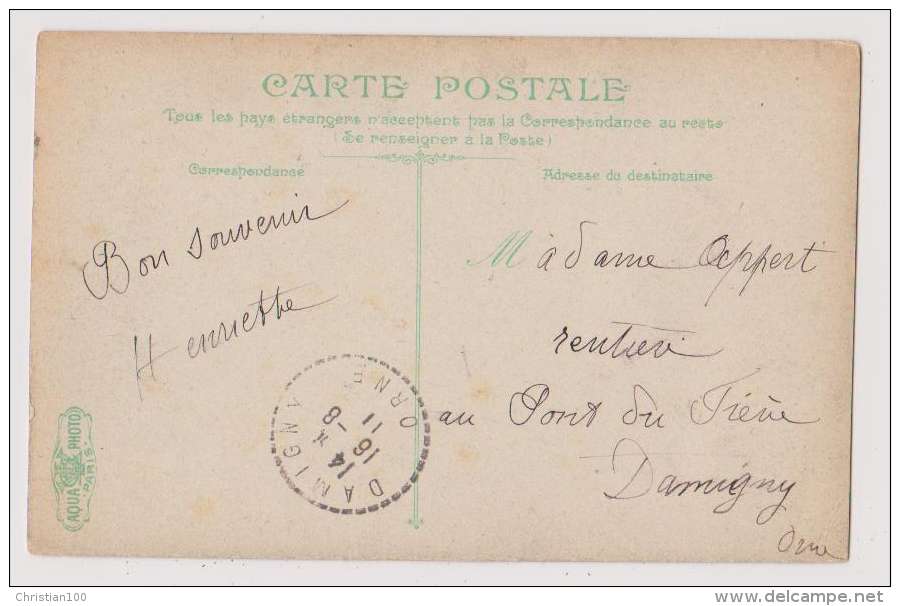 CARTE POSTALE
Tous les pays étrangers n'acceptent pas la Correspondance au recto
(Se renseigner à la Poste)
Correspondance
Adresse du destinataire
Bon souvenir
Henriette
Madame Oppert
rentière
au Pont du Fresne
Damigny
Orne
DAMIGNY ORNE
14 * 8
16
11
AQUA PHOTO
PARIS
Christian100
www.delcampe.net